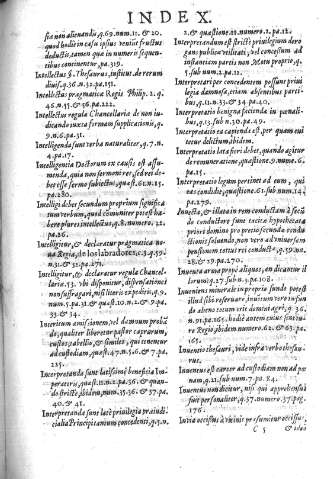 INDEX.
sia non alienandis, q.69. num.11. & 20.
quod hodie in casu ipsius veniūt fructus
deductis, tamen quæ in numeris sequen-
tibus continentur, pa.319.
Intellectus §. Thesaurus, institu. de rerum
diuis. q.36. n.32. pa.151.
Intellectus pragmatica Regis Philip. 2. q.
46. n.55. & 56. pa.222.
Intellectus regula Chancellaria de non iu-
dicando iuxta formam supplicationis, q.
9. n.6. pa.31.
Intelligenda sunt verba naturaliter, q.7. n.
4. pa.17.
Intelligentia Doctorum ex causis est assu-
menda, quia non sermoni res, sed rei de-
bet esse sermo subiectus, quæst.61. n.15.
pa.280.
Intelligi debet secundum proprium significa
tum verbum, quod communiter potest ha-
bere plures intellectus, q.8. numero.22.
pa.26.
Intelligitur, & declaratur pragmatica no-
ua Regia, de los labradores, c.3. q.59.
n.31. & 32. pa.270.
Intelligitur, & declaratur regula Chancel-
lariæ.13. vbi disponitur, dispensationes
non suffragari, nisi literis expeditis, q.9.
num.5. pa.31. & quæst.10. n.2. & 9. pa.
33. & 34.
Interitum amissionem, vel damnum proba
do, qualiter liberentur pastor caprarum,
custos caballo, & similes, qui tenentur
ad custodiam, quæst.47. n.5.6. & 7. pa.
235.
Interpretanda sunt latissimè beneficia Im-
peratoriu, quæst.10. n.2. pa.36. & quan-
do strictè, ibidem, num.35.36. & 37. pa.
40. & 41.
Interpretanda sunt latè priuilegia præiudi-
cialia Principi tantum concedenti, q.3. n.
2. & quæstione.22. numero.1. pa.12.
Interpretandum est strictè priuilegium dero
gans publica vtilitati, vel concessum ad
instantiam partis non Motu proprio, q.
5. sub num.2. pa.12.
Interpretari per concedentem possunt priui
legia damnosa, etiam absentibus parti-
bus, q.11. n.33. & 34. pa.40.
Interpretatio benigna facienda in pœnali-
bus, q.13. sub n.30. pa.49.
Interpretatio ea capienda est, per quam eui
tetur delictum, ibidem.
Interpretatio lata fieri debet, quando agitur
de remuneratione, quæstione.9. nume.6.
pa.15.
Interpretatio legum pertinet ad eum, qui
eas condidit, quæstione.61. sub num.14.
pa.279.
Inuecta, & illata in rem conductam à secū
do conductore sunt tacitè hypothecata
priori domino pro precio secundæ condu
ctionis
28. & 29. pa.270.
Inuenta arma propè aliquos, en dicantur il
lorum? q.27. sub n.3. pa.108.
Inueniens minerale in proprio fundo potest
illud sibi reseruare, inuentum verò in fun-
do alieno tocum erit domini agri, q.36.
n.19. pa.165. hodiè autem veniunt seruitu
re Regio, ibidem numero.62. & 63. pa.
165.
Inuentio thesauri, vide infra verbo thesau-
rus.
Inuentus est carcer ad custodiam non ad pœ
nam, q.21. sub num.7. po.84.
Inuentus non dicitur, nisi qui apprehensus
sit personaliter, q.37. numero.37. pag.
176.
Iuuia occisus à vicinis præsumitur occisus,
C 5